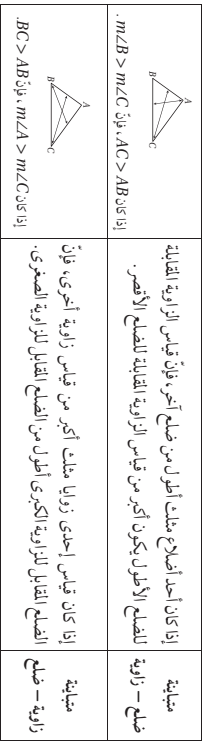 متباينة
ضلع – زاوية
إذا كان أحد أضلاع مثلث أطول من ضلع آخر، فإنّ قياس الزاوية المقابلة
للضلع الأطول يكون أكبر من قياس الزاوية المقابلة للضلع الأقصر.
A
B
C
إذا كان AC > AB ، فإنّ m∠B > m∠C .
متباينة
زاوية – ضلع
إذا كان قياس إحدى زوايا مثلث أكبر من قياس زاوية أخرى، فإنّ
الضلع المقابل للزاوية الكبرى أطول من الضلع المقابل للزاوية الصغرى.
A
B
C
إذا كان m∠A > m∠C ، فإنّ BC > AB.